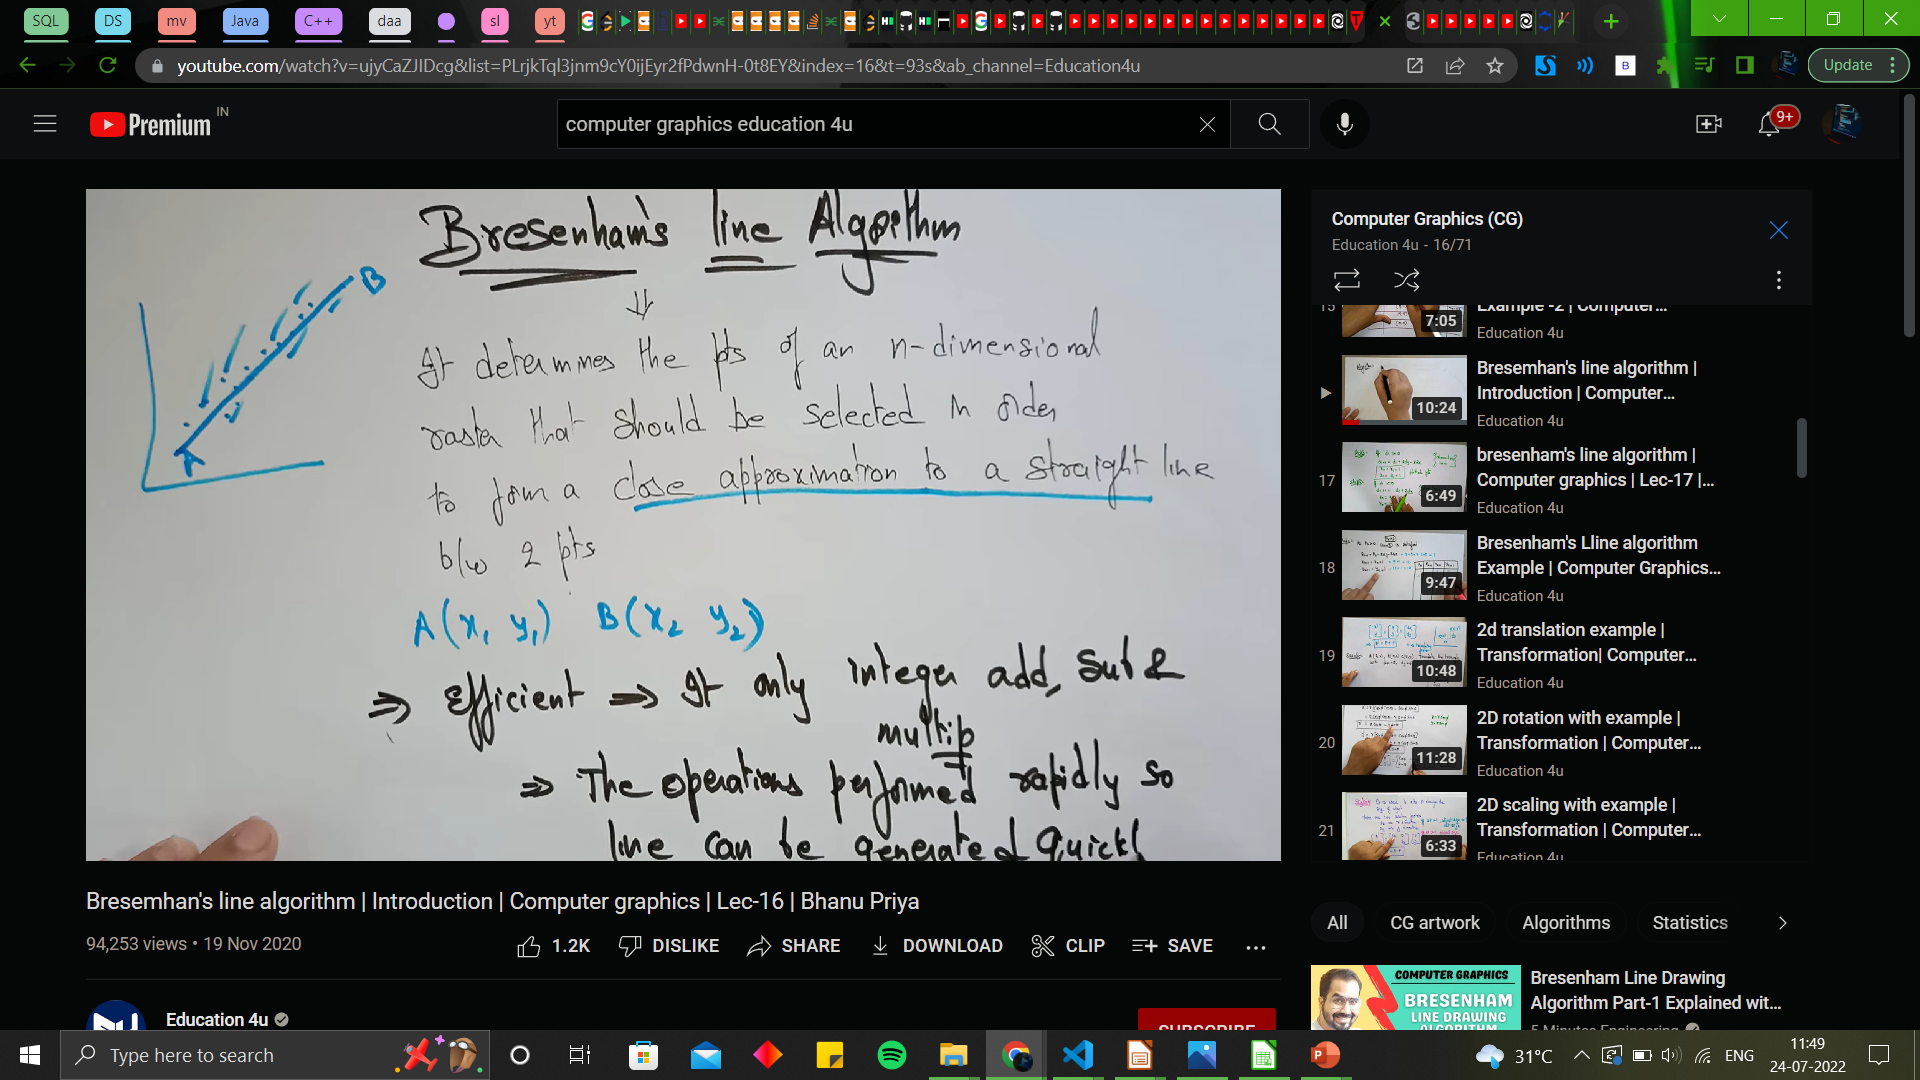 SQL DS mv Java C++ daa sl yt
youtube.com/watch?v=ujyCaZJIDcg&list=PLrjkTql3jnm9cY0ijEyr2fPdwnH-0t8EY&index=16&t=93s&ab_channel=Education4u
Update
Premium IN
computer graphics education 4u
9+
Bresenham's line Algorithm
B
It determines the pts of an n-dimensional
raster that should be selected in order
to form a close approximation to a straight line
b/w 2 pts
A
A(x1 y1) B(x2 y2)
⇒ Efficient ⇒ It only integer add, sub &
multip
⇒ The operations performed rapidly so
line can be generated
Bresemhan's line algorithm | Introduction | Computer graphics | Lec-16 | Bhanu Priya
94,253 views • 19 Nov 2020
1.2K DISLIKE SHARE DOWNLOAD CLIP SAVE ...
Education 4u
SUBSCRIBE
Computer Graphics (CG)
Education 4u - 16/71
15
7:05
Example -2 | Computer...
Education 4u
10:24
Bresemhan's line algorithm |
Introduction | Computer...
Education 4u
17
6:49
bresenham's line algorithm |
Computer graphics | Lec-17 |...
Education 4u
18
9:47
Bresenham's Lline algorithm
Example | Computer Graphics...
Education 4u
19
10:48
2d translation example |
Transformation| Computer...
Education 4u
20
11:28
2D rotation with example |
Transformation | Computer...
Education 4u
21
6:33
2D scaling with example |
Transformation | Computer...
Education 4u
All CG artwork Algorithms Statistics
COMPUTER GRAPHICS
BRESENHAM
LINE DRAWING
ALGORITHM
Bresenham Line Drawing
Algorithm Part-1 Explained wit...
5 Minutes Engineering
Type here to search
31°C ENG
11:49
24-07-2022